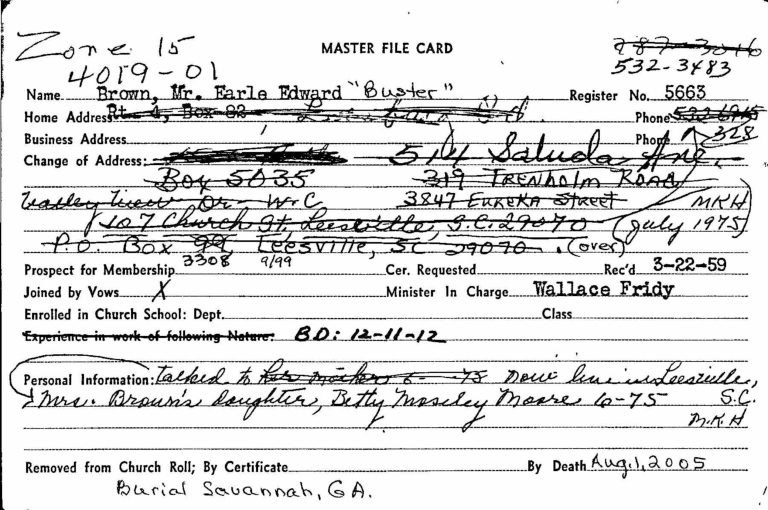 Zone 15
MASTER FILE CARD
787-3016
4019-01
532-3483
Name Brown, Mr. Earle Edward "Buster"
Register No. 5663
Home Address Rt. 4, Box 82
Phone 532 6915
Business Address
Phone 328
Change of Address: 514 Saluda Ave.
Box 5035 319 Trenholm Road
Valley View Dr W-C 3847 Eureka Street MKH
107 Church St, Leesville, S.C. 29070 (July 1975)
P.O. Box 99 Leesville, SC 29070. (over)
Prospect for Membership 3308 9/99 Cer. Requested Rec'd 3-22-59
Joined by Vows X Minister In Charge Wallace Fridy
Enrolled in Church School: Dept. Class
Experience in work of following Nature: BD: 12-11-12
Personal Information: talked to her mother 6- -75 now live in Leesville, S.C.
Mrs. Brown's daughter, Betty Moseley Moore 6-75
M.K.H
Removed from Church Roll; By Certificate By Death Aug. 1, 2005
Burial Savannah, GA.